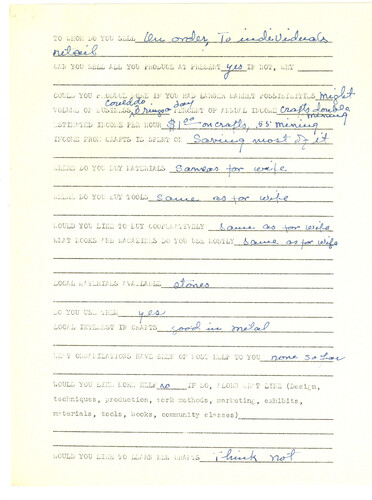 TO WHOM DO YOU SELL On order, To individuals
retail
CAN YOU SELL ALL YOU PRODUCE AT PRESENT yes IF NOT, WHY
COULD YOU PRODUCE MORE IF YOU HAD LARGER MARKET POSSIBILITIES Might
VOLUME OF BUSINESS day PERCENT OF ANNUAL INCOME crafts double
mining
ESTIMATED INCOME PER HOUR $1.00 on crafts, .55 mining
INCOME FROM CRAFTS IS SPENT ON Saving most of it
WHERE DO YOU BUY MATERIALS Same as for wife
WHERE DO YOU BUY TOOLS same as for wife
WOULD YOU LIKE TO BUY COOPERATIVELY same as for wife
WHAT BOOKS AND MAGAZINES DO YOU USE MOSTLY same as for wife
LOCAL MATERIALS AVAILABLE stones
DO YOU USE THEM yes
LOCAL INTEREST IN CRAFTS good in metal
WHAT ORGANIZATIONS HAVE BEEN OF MOST HELP TO YOU none so far
WOULD YOU LIKE MORE HELP no IF SO, ALONG WHAT LINE (Design,
techniques, production, work methods, marketing, exhibits,
materials, tools, books, community classes)
WOULD YOU LIKE TO LEARN NEW CRAFTS Think not